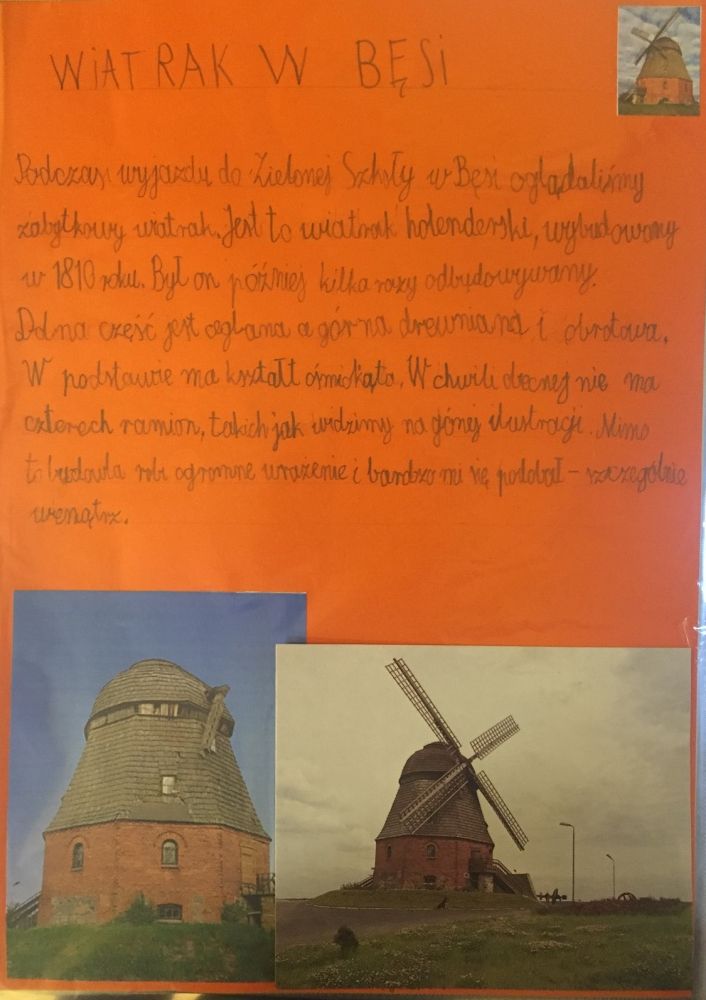 WIATRAK W BĘSI
Podczas wyjazdu do Zielonej Szkoły w Bęsi oglądaliśmy
zabytkowy wiatrak. Jest to wiatrak holenderski, wybudowany
w 1810 roku. Był on później kilka razy odbudowywany.
Dolna część jest ceglana a górna drewniana i obrotowa.
W podstawie ma kształt ośmiokąta. W chwili obecnej nie ma
czterech ramion, takich jak widzimy na górnej ilustracji. Mimo
to budowla robi ogromne wrażenie i bardzo mi się podobał - szczególnie
wewnątrz.